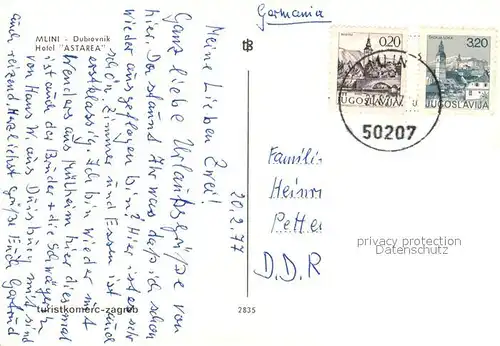 MLINI - Dubrovnik
Hotel "ASTAREA"
Germania
0,20
3,20
JUGOSLAVIJA
JUGOSLAVIJA
MLINI
50207
20.2.77
Meine Lieben Zwei!
Ganz liebe Urlaubsgrüße von
hier. Da staunt Ihr was daß ich schon
wieder ausgeflogen bin? Hier ist es sehr
schön. Zimmer und Essen ist auch
erstklassig. Ich bin wieder mit
aus Mülheim hier diesmal
ist auch der Bruder + die Schwägerin
von Hans W. aus Duisburg mit sind
auch reizend. Herzlichst grüße Euch Gertrud
Famili
Heinr
Pette
D.D.R
privacy protection
Datenschutz
turistkomerc-zagreb
2835